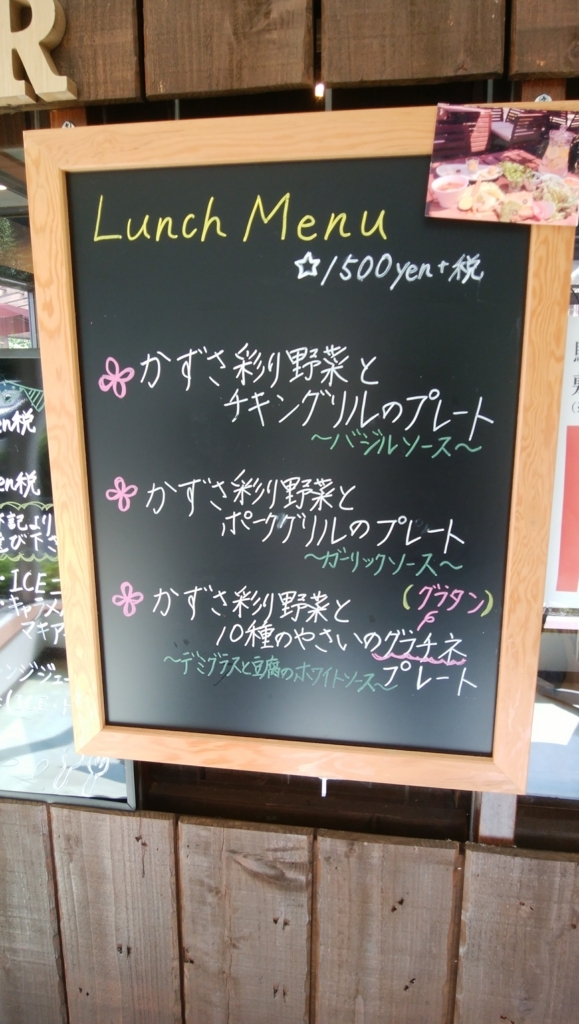 R
Lunch Menu
☆1500yen+税
かずさ彩り野菜と
チキングリルのプレート
～バジルソース～
かずさ彩り野菜と
ポークグリルのプレート
～ガーリックソース～
かずさ彩り野菜と
(グラタン)
10種のやさいのグラチネ
プレート
～デミグラスと豆腐のホワイトソース～
en税
en税
記より
び下さ
・ICE
・キャラメ
マキア
ンジジュー